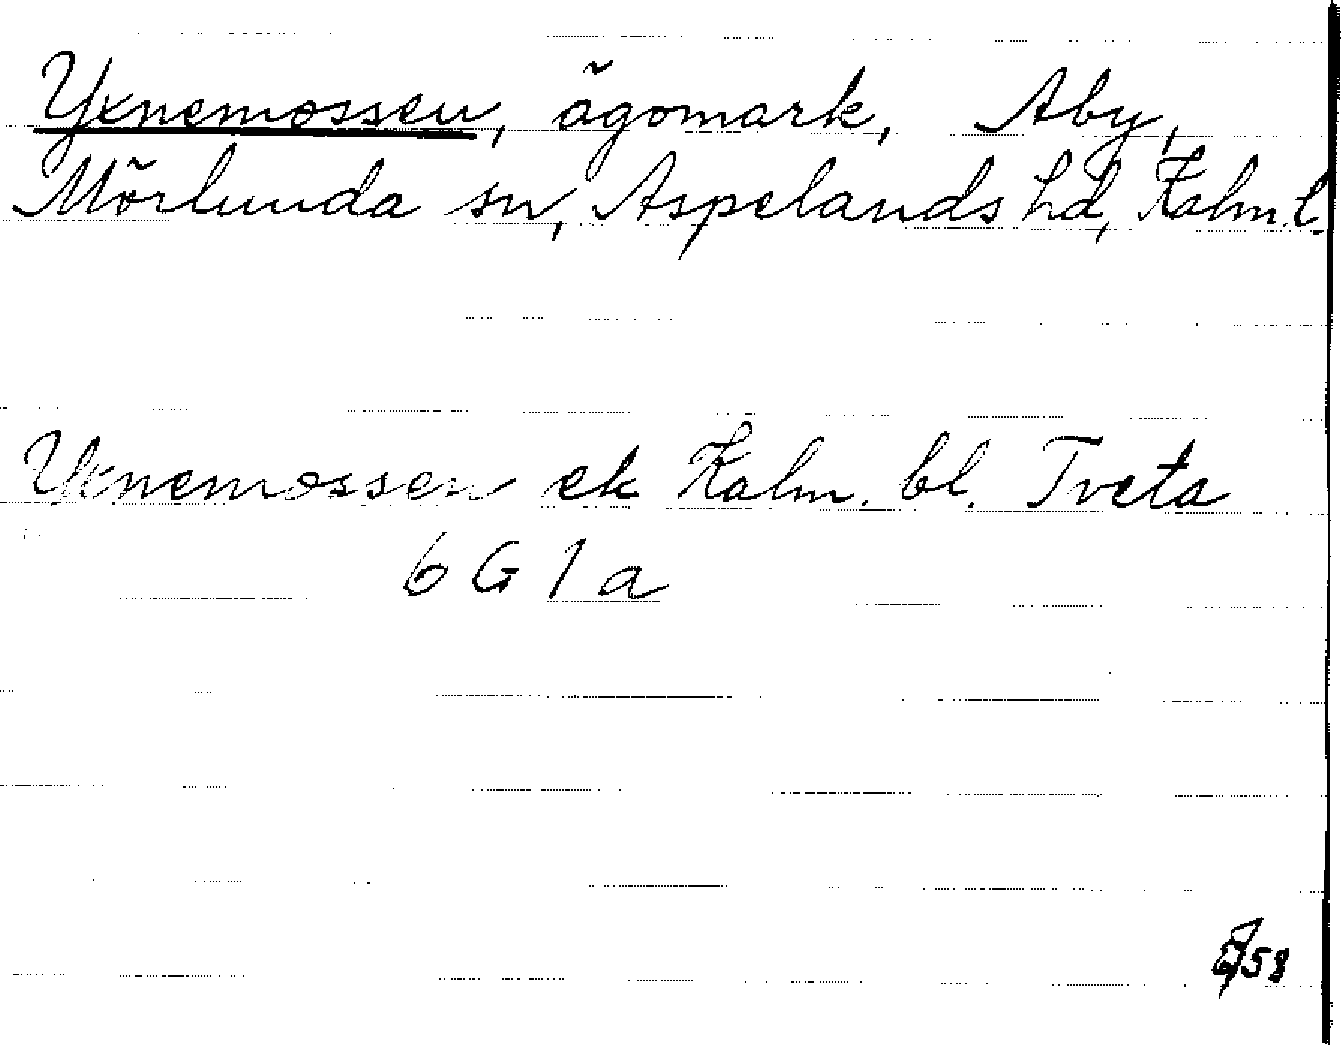 Yxnemossen, ägomark, Aby,
Mörlunda sn, Aspelands hd, Kalm. l.
Yxnemossen ek Kalm. bl. Tveta
6 G 1 a